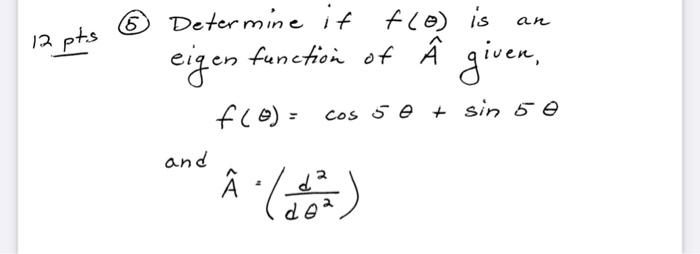 12 pts ⑤ Determine if f(θ) is an
eigen function of Â given,
f(θ) = cos 5θ + sin 5θ
and
Â = (d²/dθ²)